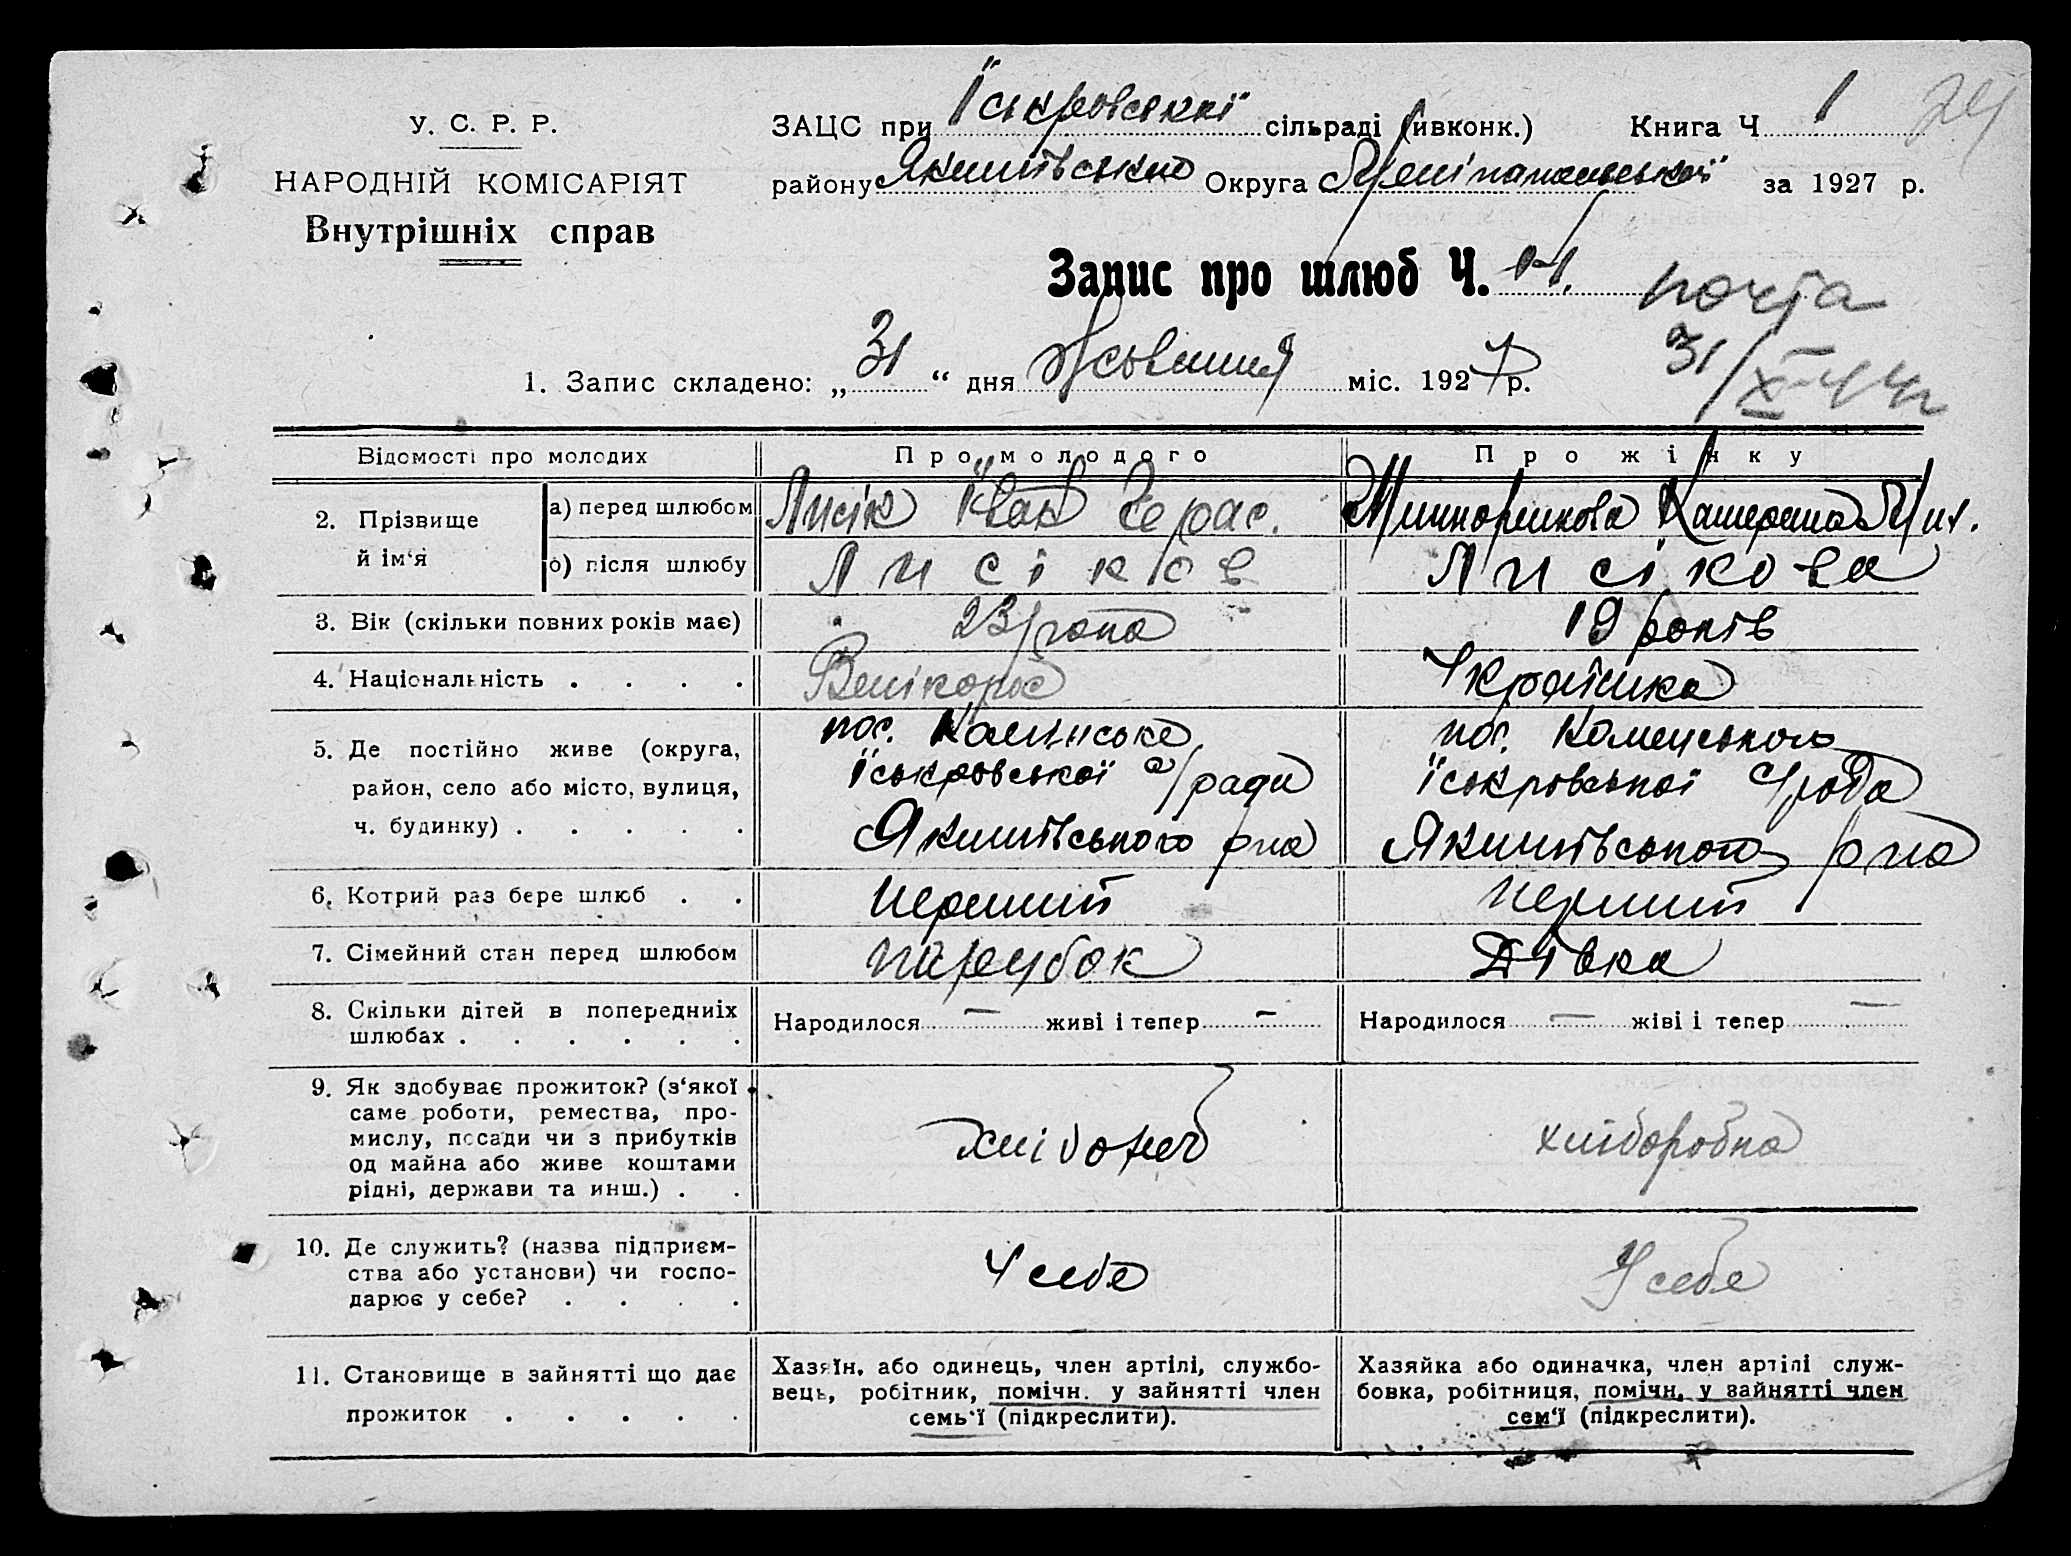 У. С. Р. Р.
НАРОДНІЙ КОМІСАРІЯТ
Внутрішніх справ
ЗАЦС при Їськровській сільраді (ивконк.) Книга Ч 1 24
району Якимівсько Округа Мелітопольської за 1927 р.
Запис про шлюб Ч. 14. почта
31/X-44г
1. Запис складено: „31“ дня Жовтня міс. 1927 р.
Відомості про молодих Про молодого Про жінку
2. Прізвище й ім‘я
а) перед шлюбом Лисік Їван Герас. Катерина Мих.
б) після шлюбу Лисіков Лисікова
3. Вік (скільки повних років має) 23 рока 19 років
4. Національність . . . . Велікорос Украінка
5. Де постійно живе (округа, район, село або місто, вулиця, ч. будинку) . . . . .
пос. Каминське
Їськровської с/ради
Якимівського р-на
пос. Каменського
Їськровської с/рада
Якимівського р-на
6. Котрий раз бере шлюб . . перший перший
7. Сімейний стан перед шлюбом парубок Дівка
8. Скільки дітей в попередниіх шлюбах . . . . . .
Народилося — живі і тепер —
Народилося — жіві і тепер —
9. Як здобуває прожиток? (з‘якої
саме роботи, ремества, про-
мислу, посади чи з прибутків
од майна або живе коштами
рідні, держави та инш.) . .
хлібороб
хліборобка
10. Де служить? (назва підприєм-
ства або установи) чи госпо-
дарює у себе? . . . .
У себе
У себе
11. Становище в зайнятті що дає
прожиток . . . . .
Хазяїн, або одинець, член артілі, службо-
вець, робітник, помічн. у зайнятті член
семь‘ї (підкреслити).
Хазяйка або одиначка, член артілі служ-
бовка, робітниця, помічн. у зайнятті член
сем‘ї (підкреслити).